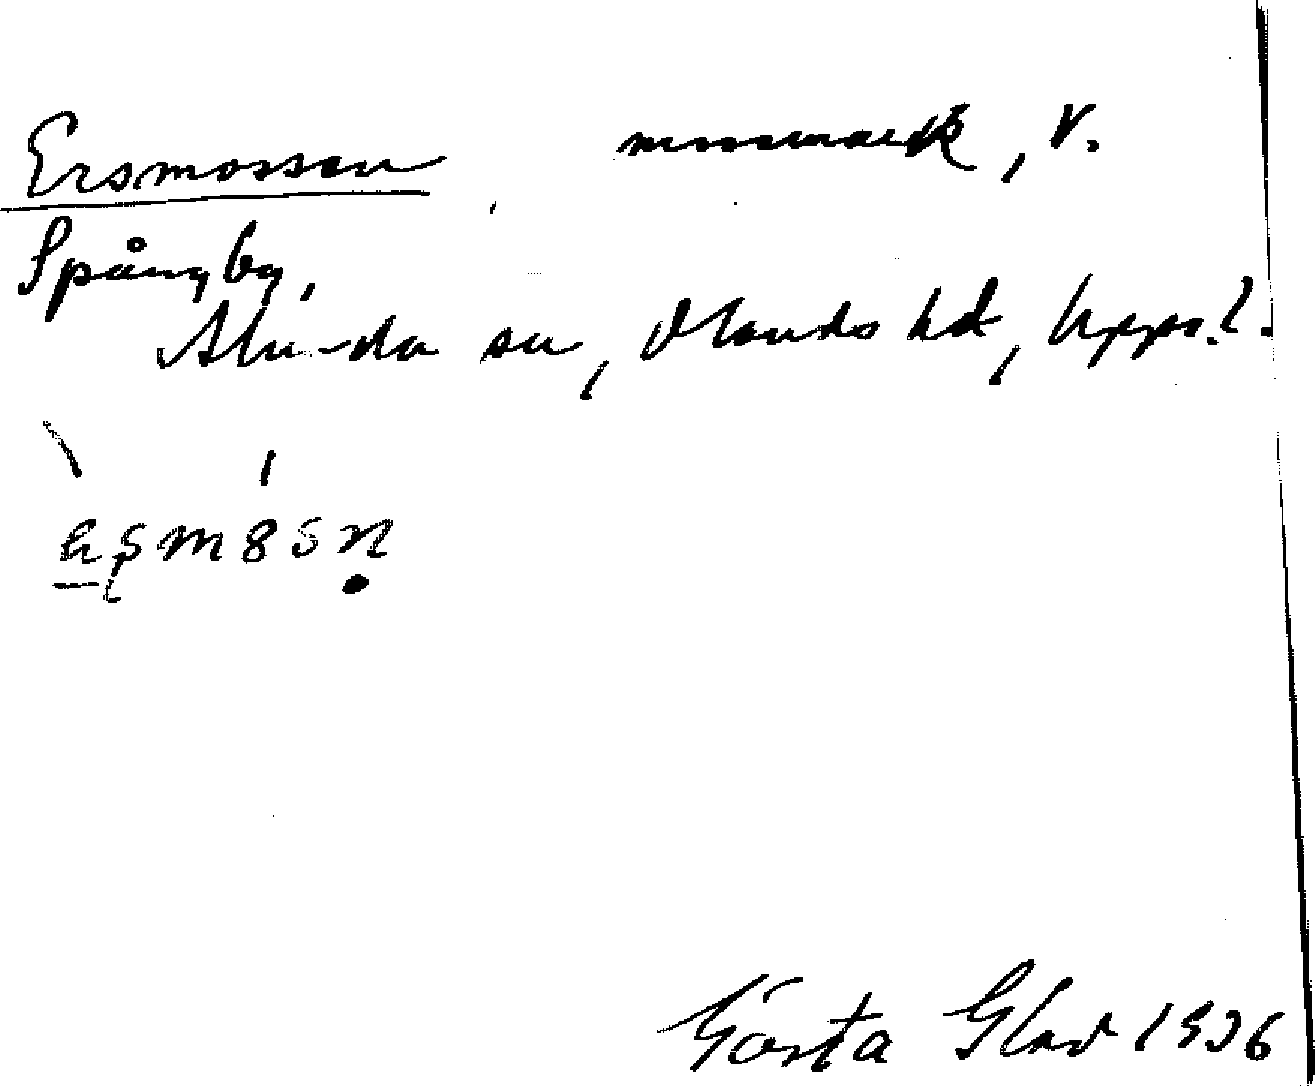 Ersmossen mossmark, V.
Spångby,
Alunda sn, Olands hd, Uppl.
Gösta Glad 1936